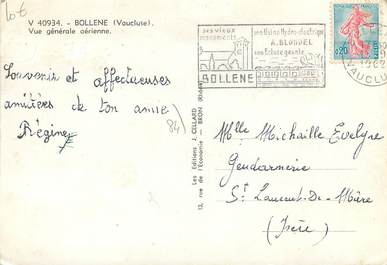 10€
V 40934. - BOLLENE (Vaucluse).
Vue générale aérienne.
ses vieux
monuments
son Usine Hydro-électrique
A. BLONDEL
son Ecluse géante
BOLLENE
0,20
VAUCLU
Souvenir et affectueuses
amitiées de ton amie
Régine
84
Les Editions J. CELLARD
13, rue de l'Economie - BRON (Rhône)
Melle Michaille Evelyne
Gendarmerie
St Laurent-De-Mûre
(Isère)